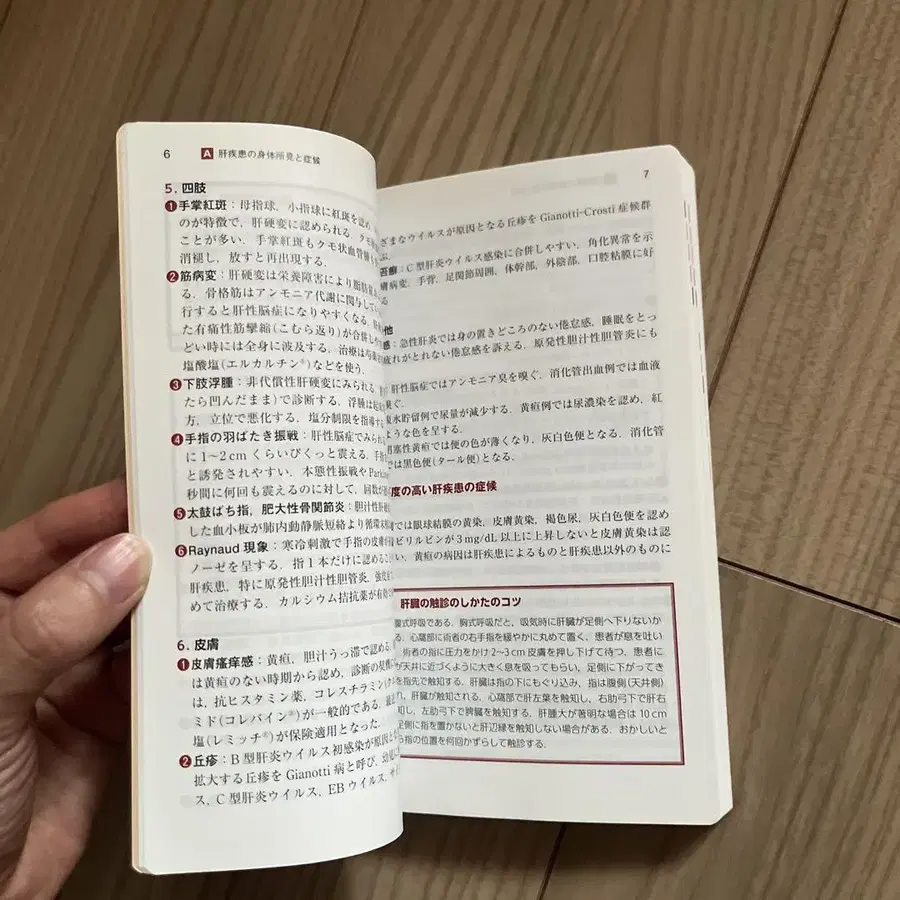 6 A 肝疾患の身体所見と症候
5. 四肢
❶手掌紅斑：母指球，小指球に紅斑を認め
のが特徴で，肝硬変に認められる．クモ状
ことが多い．手掌紅斑もクモ状血管腫も
消褪し，放すと再出現する．
❷筋病変：肝硬変は栄養障害により脂肪
る．骨格筋はアンモニア代謝に関与してい
行すると肝性脳症になりやすくなる．
た有痛性筋攣縮(こむら返り)が合併し
どい時には全身に波及する．治療は
塩酸塩(エルカルチン®)などを使う．
❸下肢浮腫：非代償性肝硬変にみられる．
たら凹んだまま)で診断する．浮腫は
方，立位で悪化する．塩分制限を指導す
❹手指の羽ばたき振戦：肝性脳症でみられ
に1～2cmくらいびくっと震える．手指
と誘発されやすい．本態性振戦やParkin
秒間に何回も震えるのに対して，回数が
❺太鼓ばち指，肥大性骨関節炎：胆汁性肝
した血小板が肺内動静脈短絡より循環
❻Raynaud現象：寒冷刺激で手指の皮膚が
ノーゼを呈する．指1本だけに認める
肝疾患，特に原発性胆汁性胆管炎，強皮
めて治療する．カルシウム拮抗薬が有効
6. 皮膚
❶皮膚瘙痒感：黄疸，胆汁うっ滞で認める
は黄疸のない時期から認め，診断の契機
は，抗ヒスタミン薬，コレスチラミン(
ミド(コレバイン®)が一般的である．
塩(レミッチ®)が保険適用となった．
❷丘疹：B型肝炎ウイルス初感染が原因と
拡大する丘疹をGianotti病と呼び，幼
ス，C型肝炎ウイルス，EBウイルス，サイ
7
ざまなウイルスが原因となる丘疹をGianotti-Crosti症候群
ぶ．
苔癬：C型肝炎ウイルス感染に合併しやすい．角化異常を示
膚病変，手背，足関節周囲，体幹部，外陰部，口腔粘膜に好
る
他
感：急性肝炎では身の置きどころのない倦怠感，睡眠をとっ
疲れがとれない倦怠感を訴える．原発性胆汁性胆管炎にも
肝性脳症ではアンモニア臭を嗅ぐ．消化管出血例では血液
嗅ぐ．
腹水貯留例で尿量が減少する．黄疸例では尿濃染を認め，紅
ような色を呈する．
閉塞性黄疸では便の色が薄くなり，灰白色便となる．消化管
では黒色便(タール便)となる．
度の高い肝疾患の症候
では眼球結膜の黄染，皮膚黄染，褐色尿，灰白色便を認め
ビリルビンが3mg/dL以上に上昇しないと皮膚黄染は
い．黄疸の病因は肝疾患によるものと肝疾患以外のものに
肝臓の触診のしかたのコツ
腹式呼吸である．胸式呼吸だと，吸気時に肝臓が足側へ下りないか
る．心窩部に術者の右手指を緩やかに丸めて置く．患者が息を吐い
術者の指に圧力をかけ2～3cm皮膚を押し下げて待つ．患者に
が天井に近づくように大きく息を吸ってもらい，足側に下がってき
を指先で触知する．肝臓は指の下にもぐり込み，指は腹側(天井側)
れ，肝臓が触知される．心窩部で肝左葉を触知し，右肋弓下で肝右
知し，左肋弓下で脾臓を触知する．肝腫大が著明な場合は10cm
足側に指を置かないと肝辺縁を触知しない場合がある．おかしいと
ら指の位置を何回かずらして触診する．